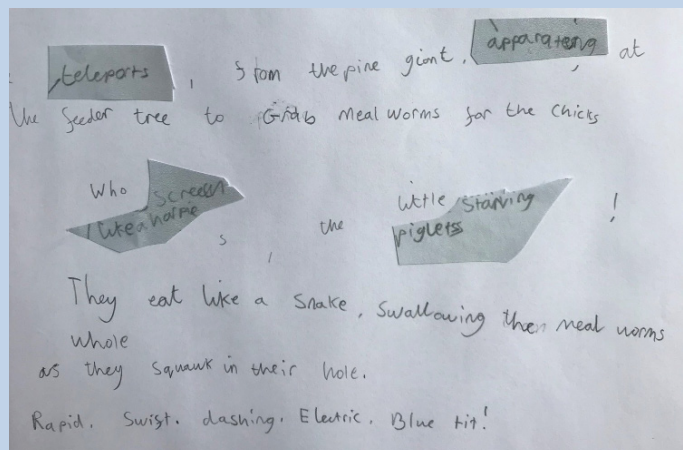 teleports, from the pine giant, apparating, at
the feeder tree to Grab meal worms for the chicks
Who screech little starving !
like a harpie s, the piglets
They eat like a snake, swallowing the meal worms
whole
as they squawk in their hole.
Rapid. Swift. dashing. Electric. Blue tit!